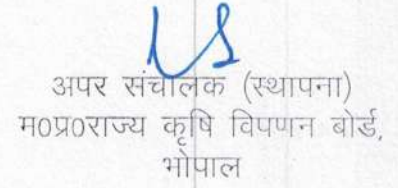 अपर संचालक (स्थापना)
म0प्र0राज्य कृषि विपणन बोर्ड,
भोपाल